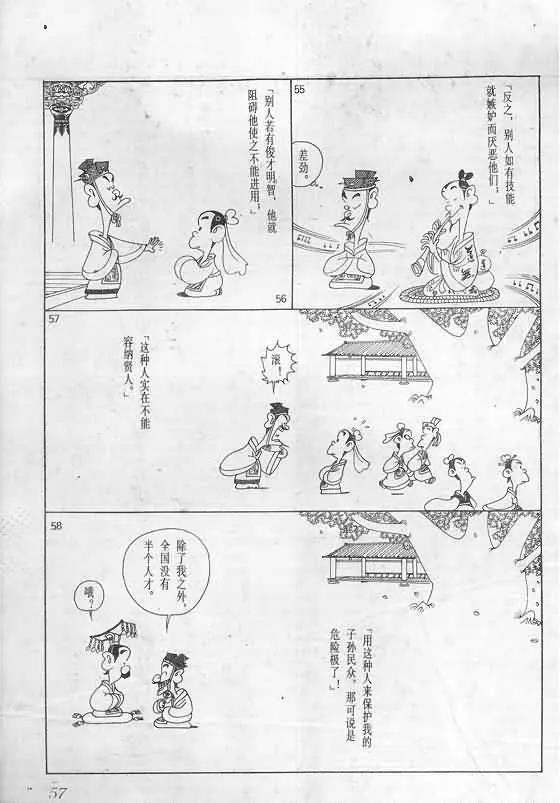 55
「反之，别人如有技能
就嫉妒而厌恶他们；」
差劲。
56
「别人若有俊才明智，他就
阻碍他使之不能进用；」
57
滚！
「这种人实在不能
容纳贤人。」
58
除了我之外，
全国没有
半个人才。
哦？
「用这种人来保护我的
子孙民众。那可说是
危险极了！」
57